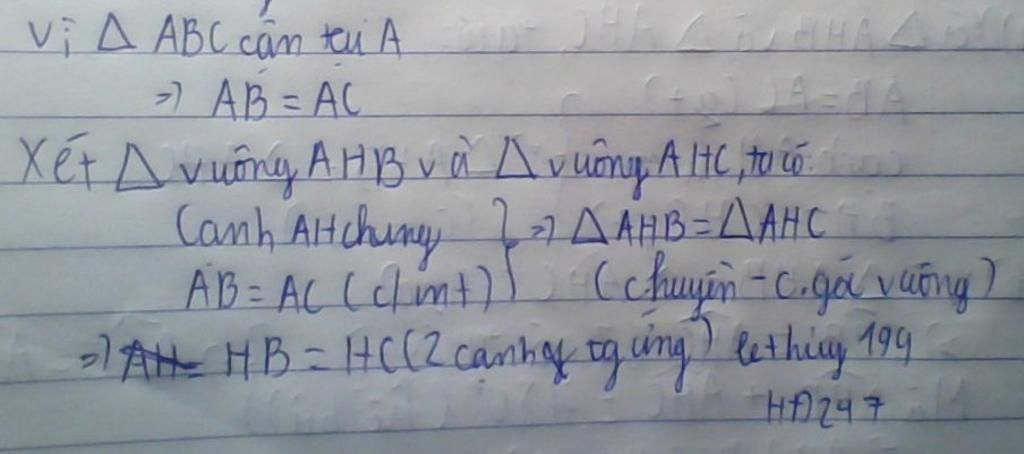 Vì Δ ABC cân tại A
=> AB = AC
Xét Δ vuông AHB và Δ vuông AHC, ta có:
Cạnh AH chung } => Δ AHB = Δ AHC
AB = AC (c/m t) (c.huyền - c.góc vuông)
=> HB = HC (2 cạnh tg ứng) lethuy 199
HD247